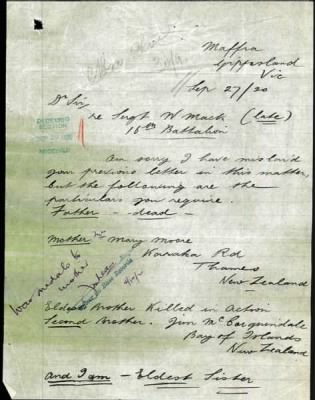 Maffra
Gippsland
Vic
Sep 27/20
Dr Sir,
re Sergt W Mack (late)
16th Battalion
Am sorry I have mislaid
your previous letter in this matter,
but the following are the
particulars you require.
Father — dead —
Mother Mary Moore
Karaka Rd
Thames
New Zealand
War medals to
mother
Eldest Brother Killed in Action
Second Brother. Jim McCorquindale
Bay of Islands
New Zealand
and I am — Eldest Sister